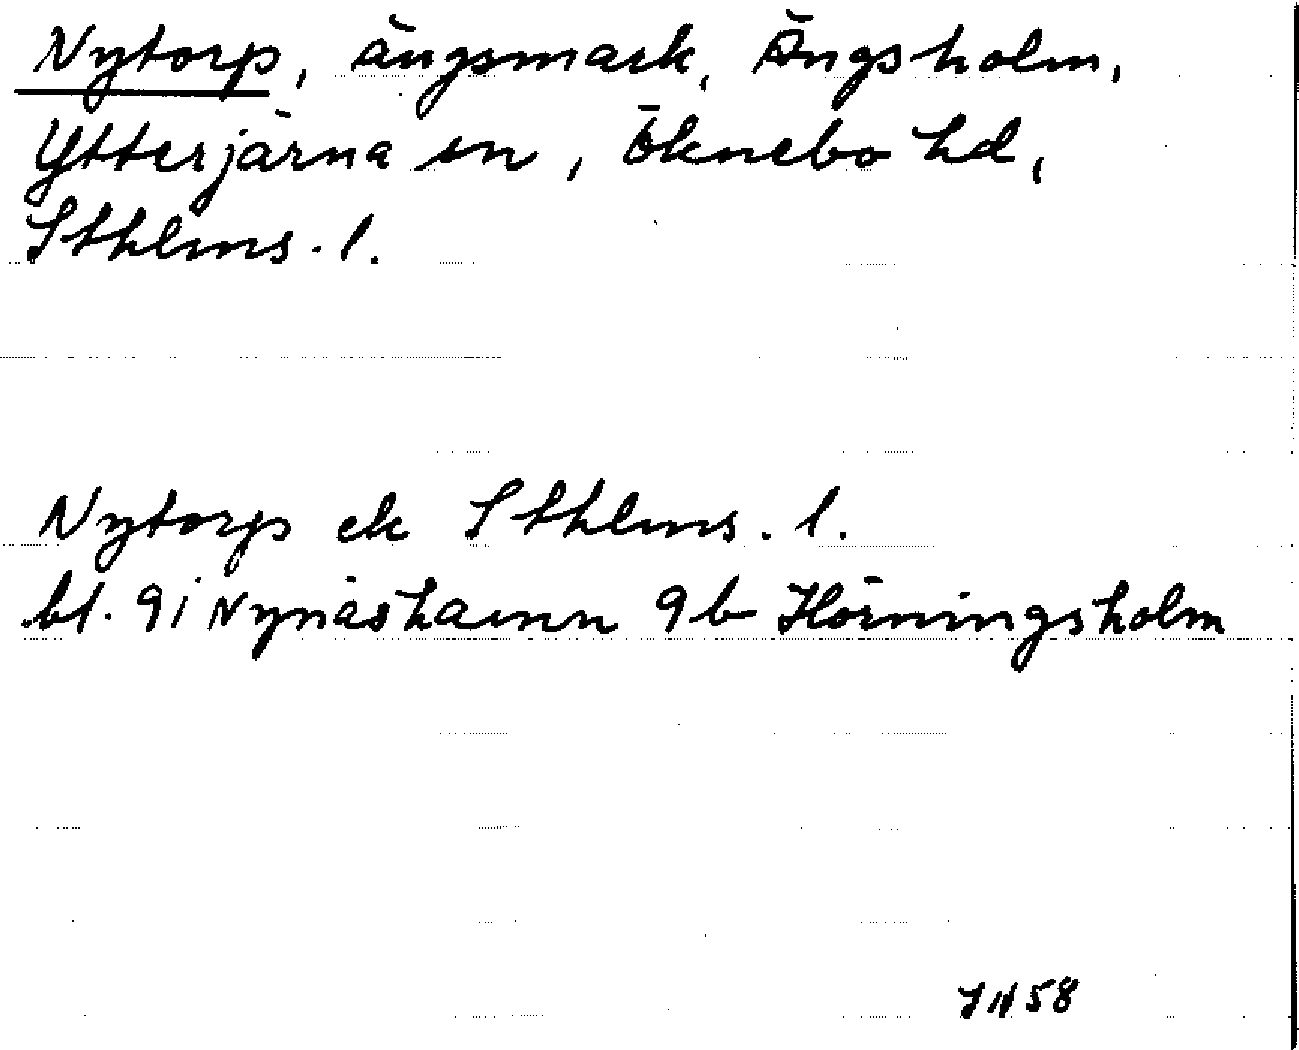 Nytorp, ängsmark, Ängsholm,
Ytterjärna sn, Öknebo hd,
Sthlms. l.
Nytorp ek Sthlms. l.
bl. 9i Nynäshamn 9b Hörningsholm
JN58